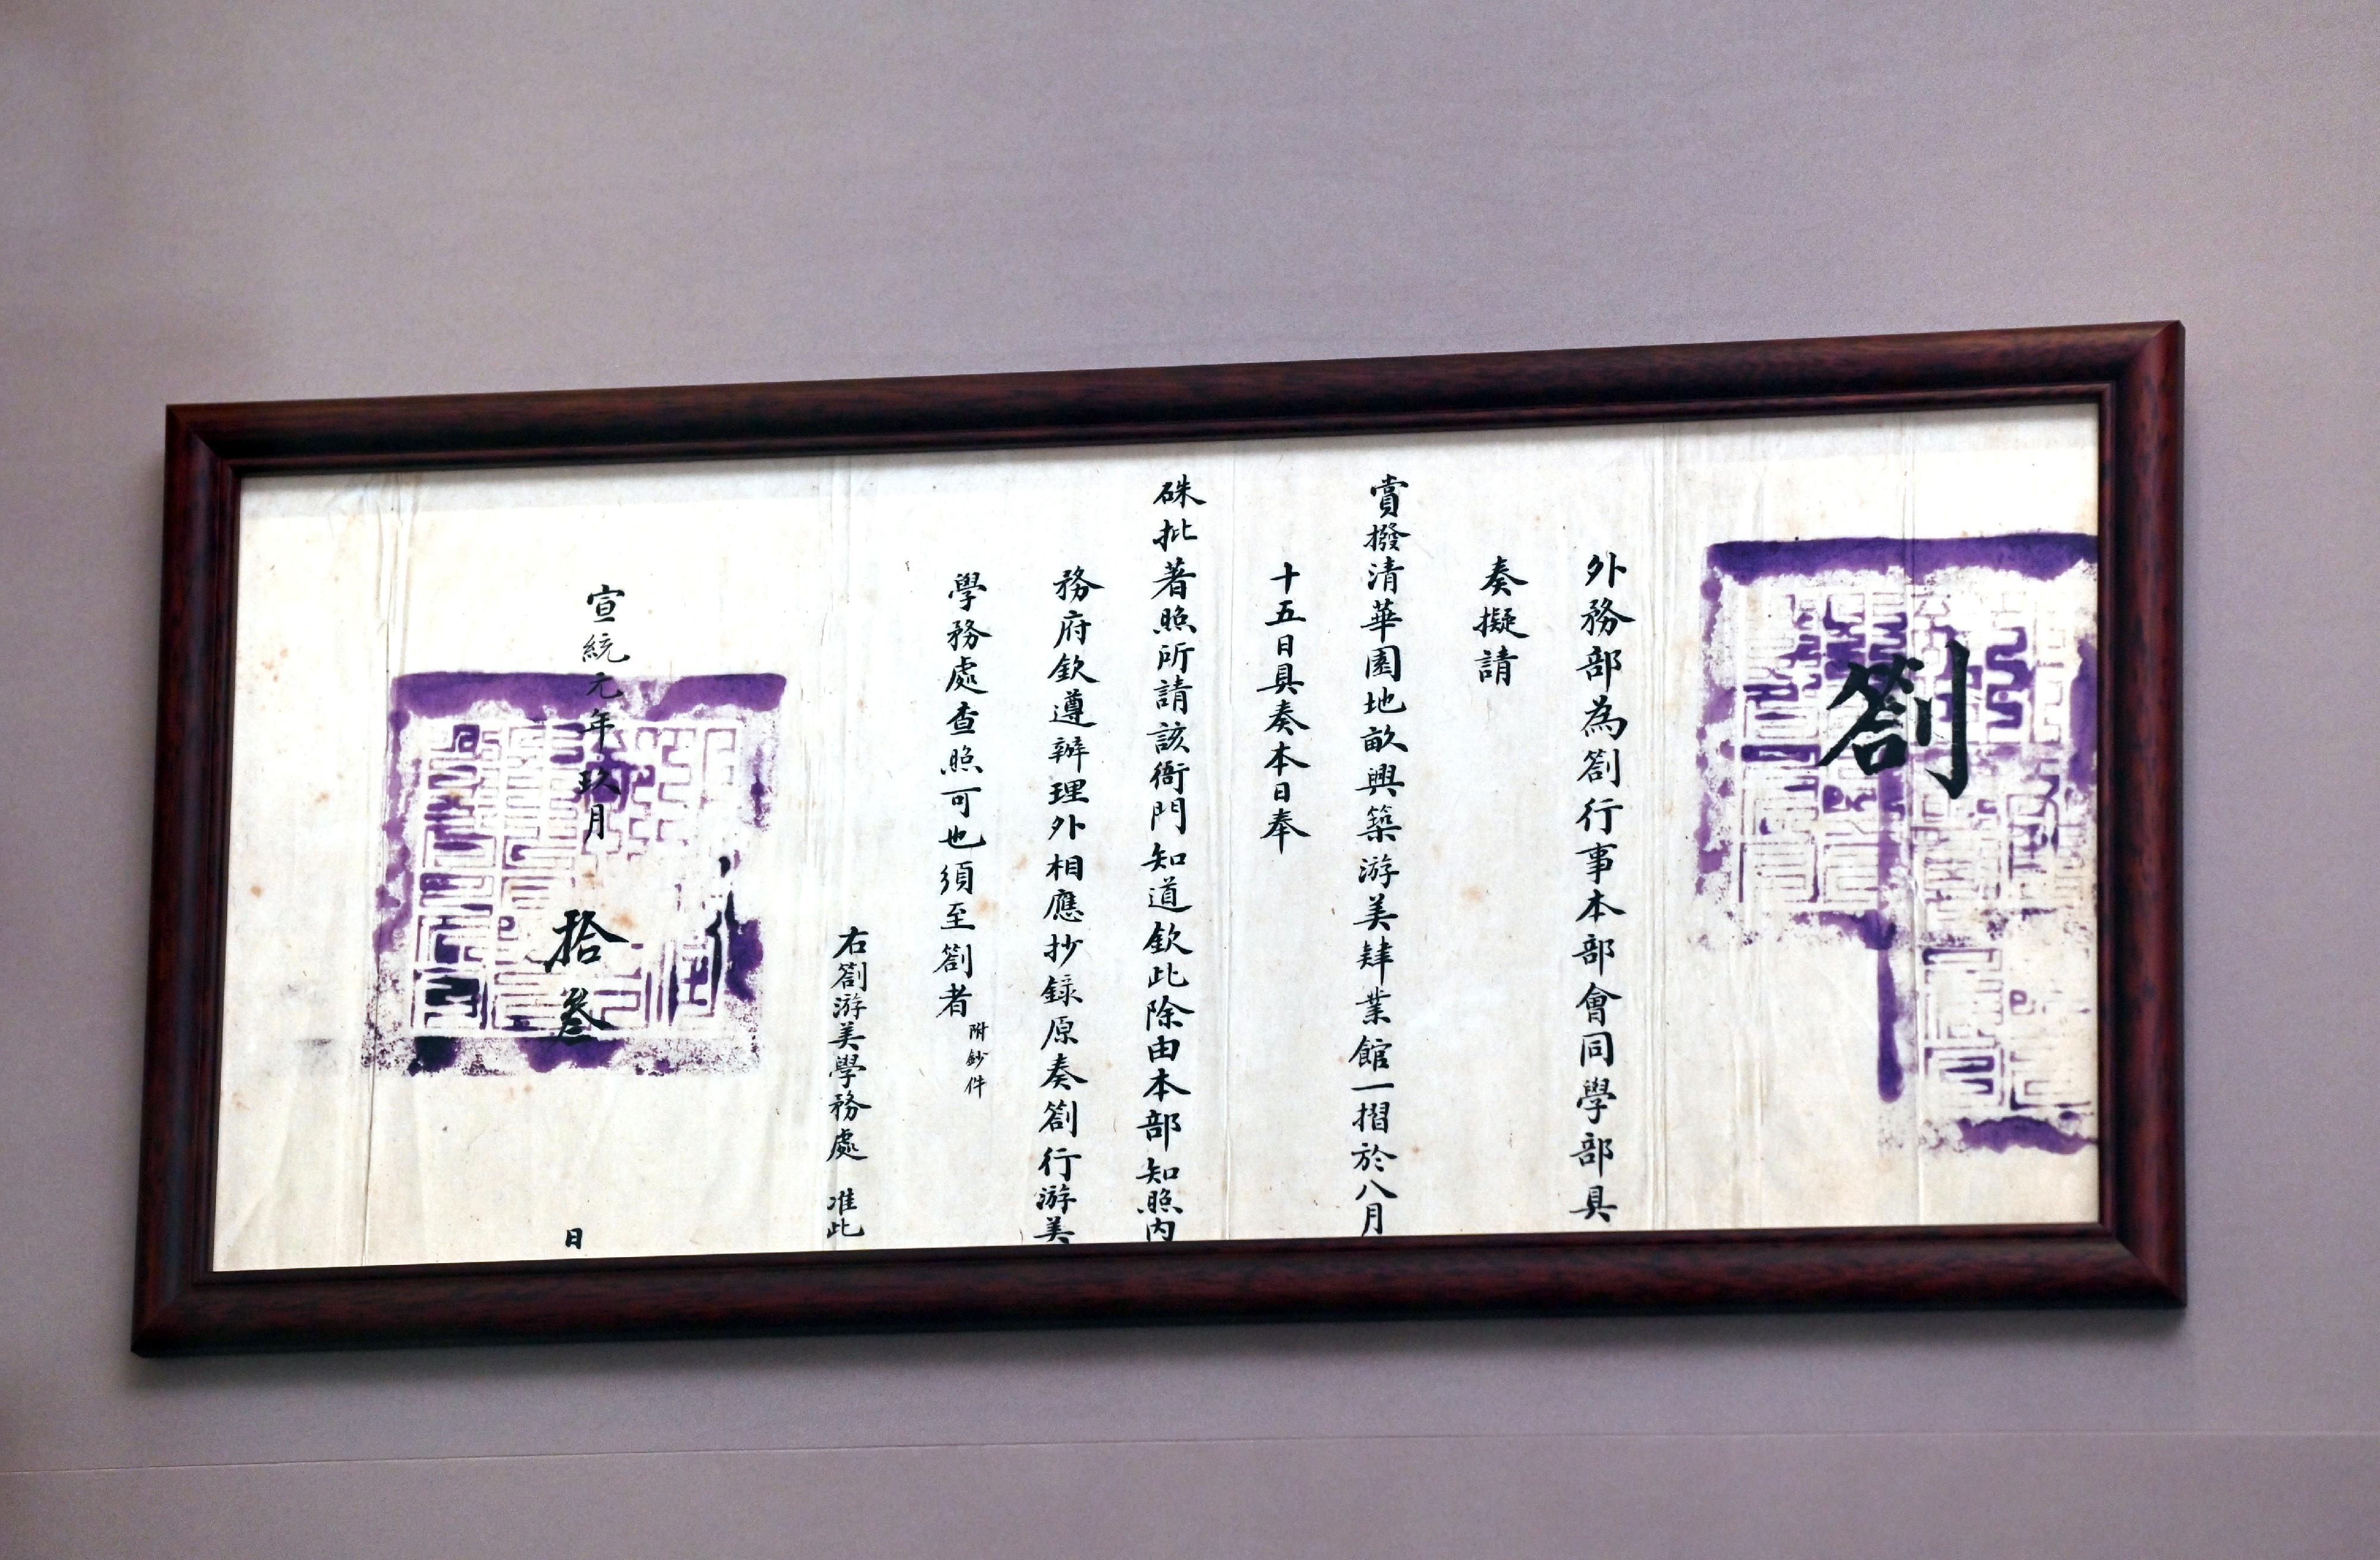 劄
外務部為劄行事本部會同學部具
奏擬請
賞撥清華園地畝興築游美肄業館一摺於八月
十五日具奏本日奉
硃批著照所請該衙門知道欽此除由本部知照內
務府欽遵辦理外相應抄錄原奏劄行游美
學務處查照可也須至劄者 附鈔件
右劄游美學務處 准此
宣統元年玖月 拾叁 日